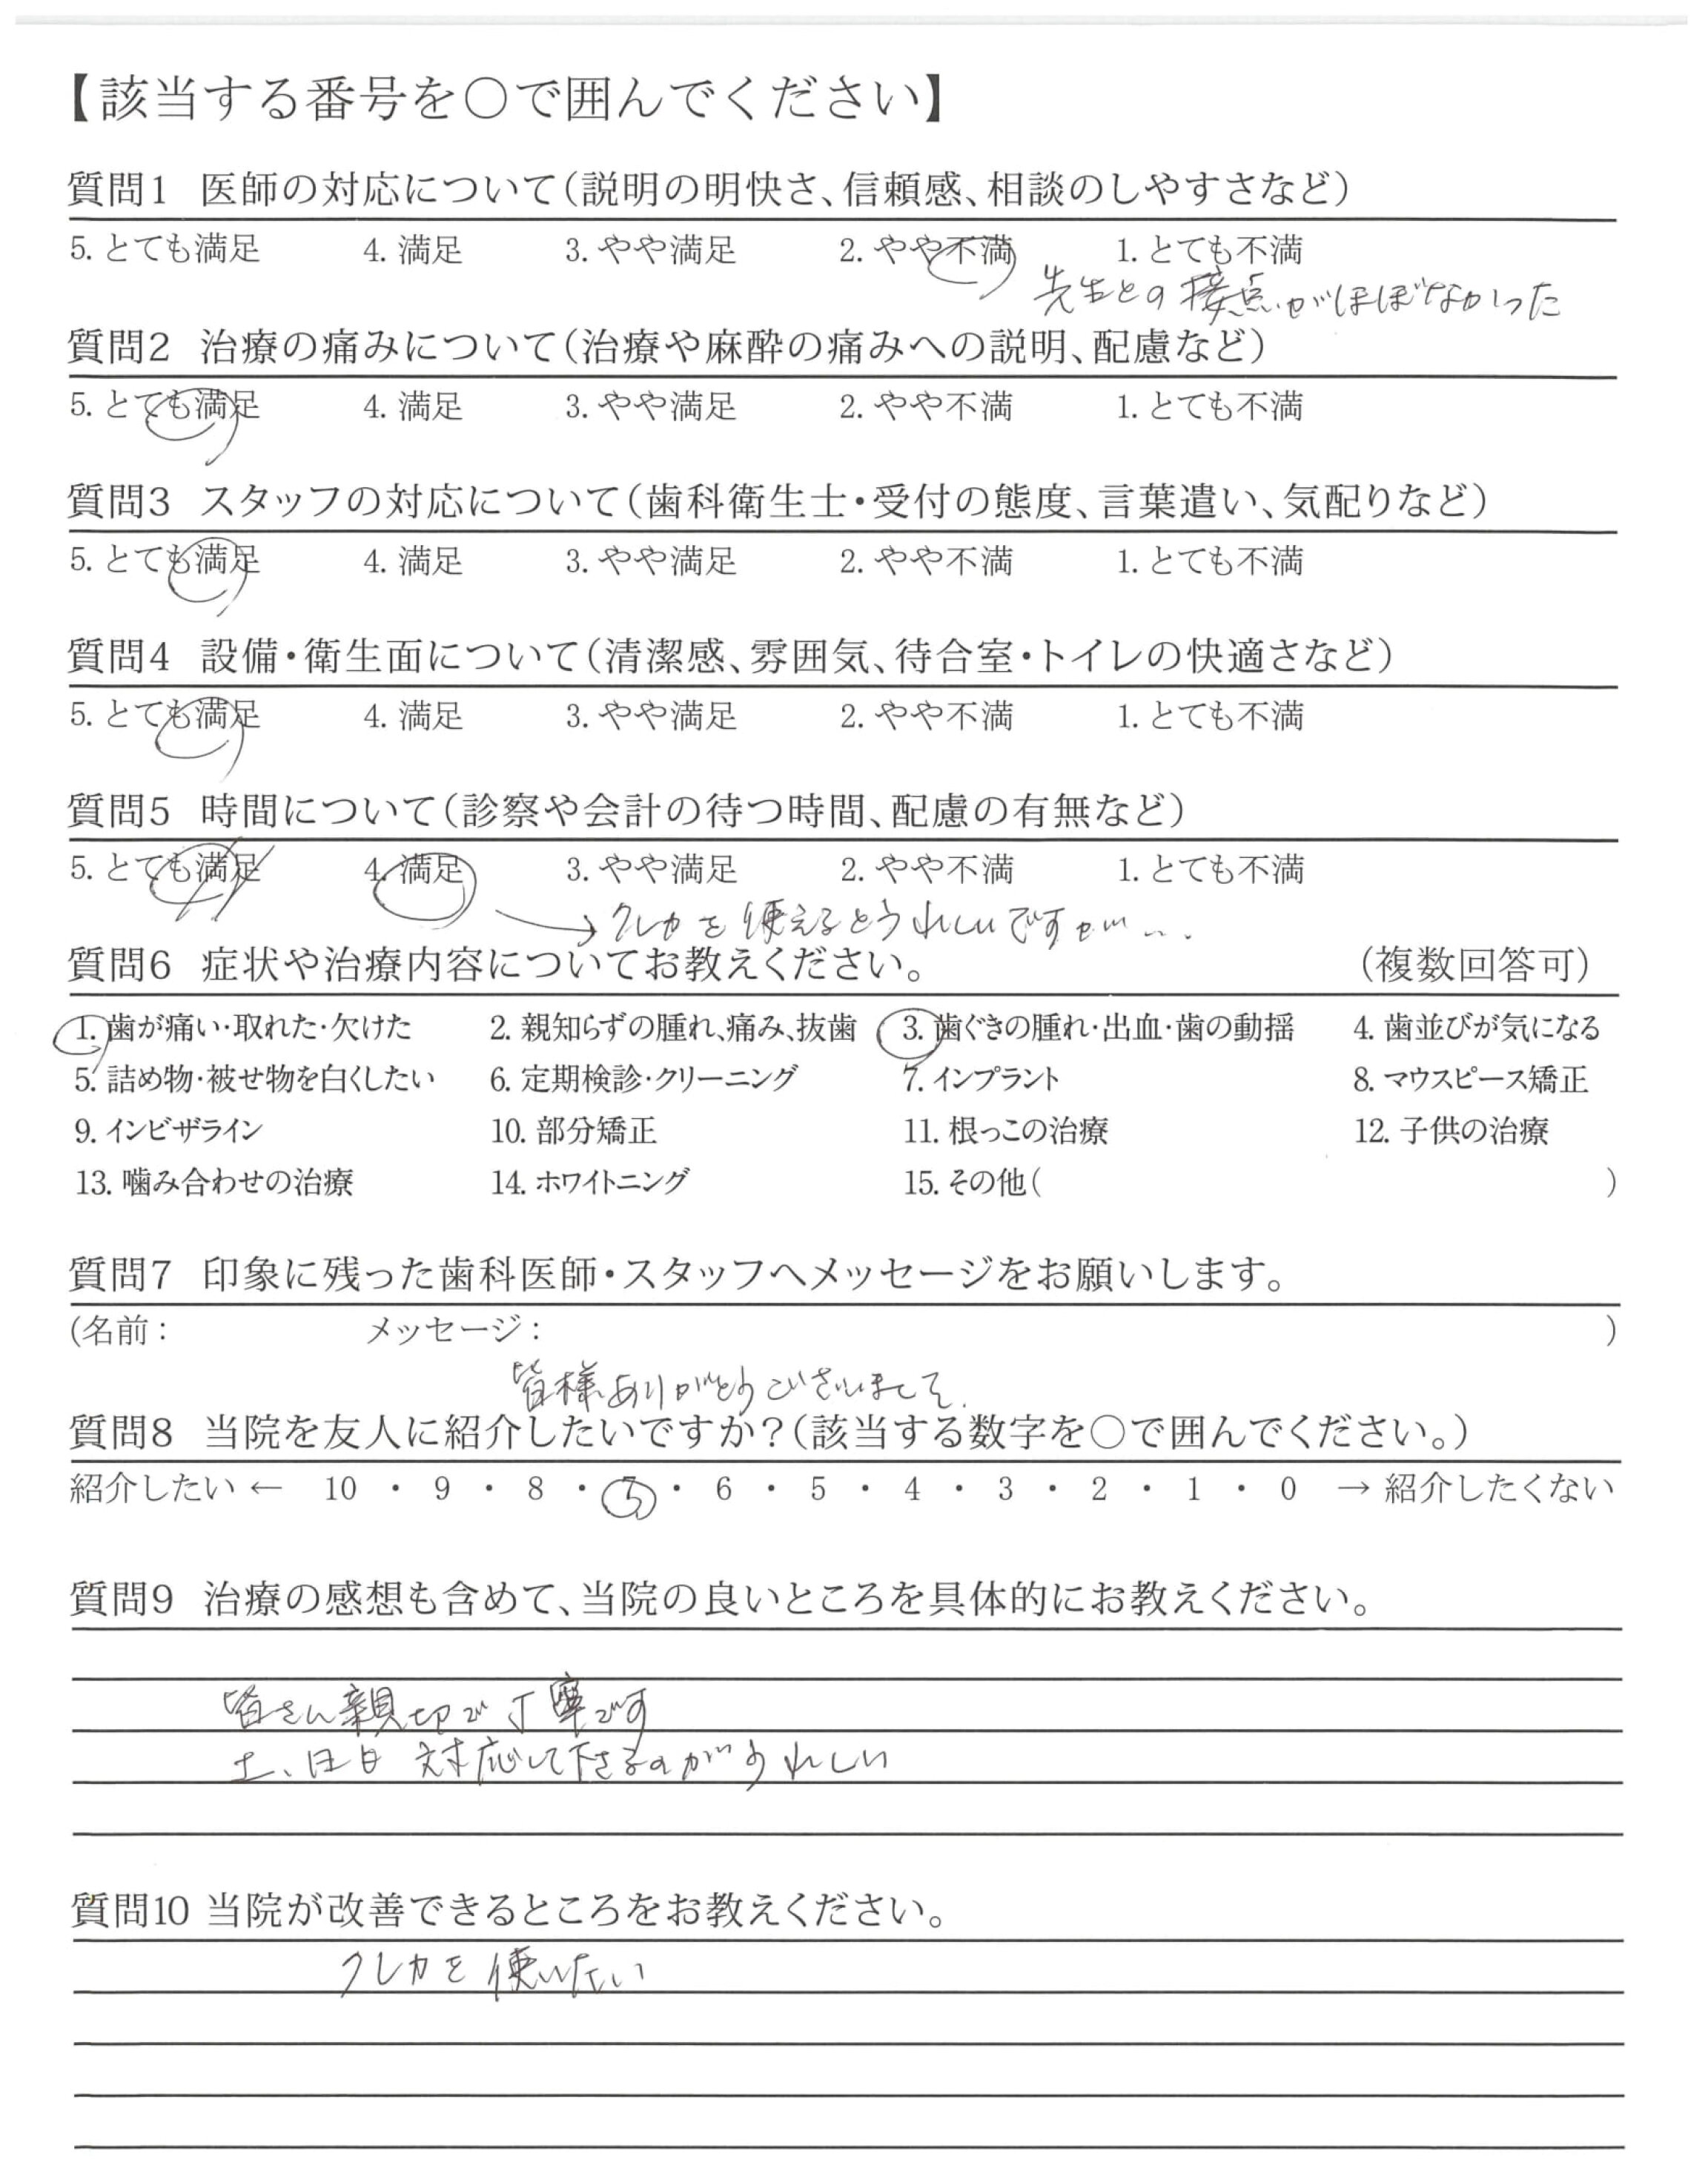 【該当する番号を○で囲んでください】
質問1 医師の対応について(説明の明快さ、信頼感、相談のしやすさなど)
5. とても満足 4. 満足 3. やや満足 2. やや不満 1. とても不満
先生との接点がほぼなかった
質問2 治療の痛みについて(治療や麻酔の痛みへの説明、配慮など)
5. とても満足 4. 満足 3. やや満足 2. やや不満 1. とても不満
質問3 スタッフの対応について(歯科衛生士・受付の態度、言葉遣い、気配りなど)
5. とても満足 4. 満足 3. やや満足 2. やや不満 1. とても不満
質問4 設備・衛生面について(清潔感、雰囲気、待合室・トイレの快適さなど)
5. とても満足 4. 満足 3. やや満足 2. やや不満 1. とても不満
質問5 時間について(診察や会計の待つ時間、配慮の有無など)
5. とても満足 4. 満足 3. やや満足 2. やや不満 1. とても不満
→クレカを使えるとうれしいですが...
質問6 症状や治療内容についてお教えください。 (複数回答可)
1. 歯が痛い・取れた・欠けた 2. 親知らずの腫れ、痛み、抜歯 3. 歯ぐきの腫れ・出血・歯の動揺 4. 歯並びが気になる
5. 詰め物・被せ物を白くしたい 6. 定期検診・クリーニング 7. インプラント 8. マウスピース矯正
9. インビザライン 10. 部分矯正 11. 根っこの治療 12. 子供の治療
13. 噛み合わせの治療 14. ホワイトニング 15. その他( )
質問7 印象に残った歯科医師・スタッフへメッセージをお願いします。
(名前： メッセージ： )
皆様ありがとうございまして
質問8 当院を友人に紹介したいですか？(該当する数字を○で囲んでください。)
紹介したい ← 10 ・ 9 ・ 8 ・ 7 ・ 6 ・ 5 ・ 4 ・ 3 ・ 2 ・ 1 ・ 0 → 紹介したくない
質問9 治療の感想も含めて、当院の良いところを具体的にお教えください。
皆さん親切で丁寧です
土、日日 対応して下さるのがうれしい
質問10 当院が改善できるところをお教えください。
クレカを使いたい